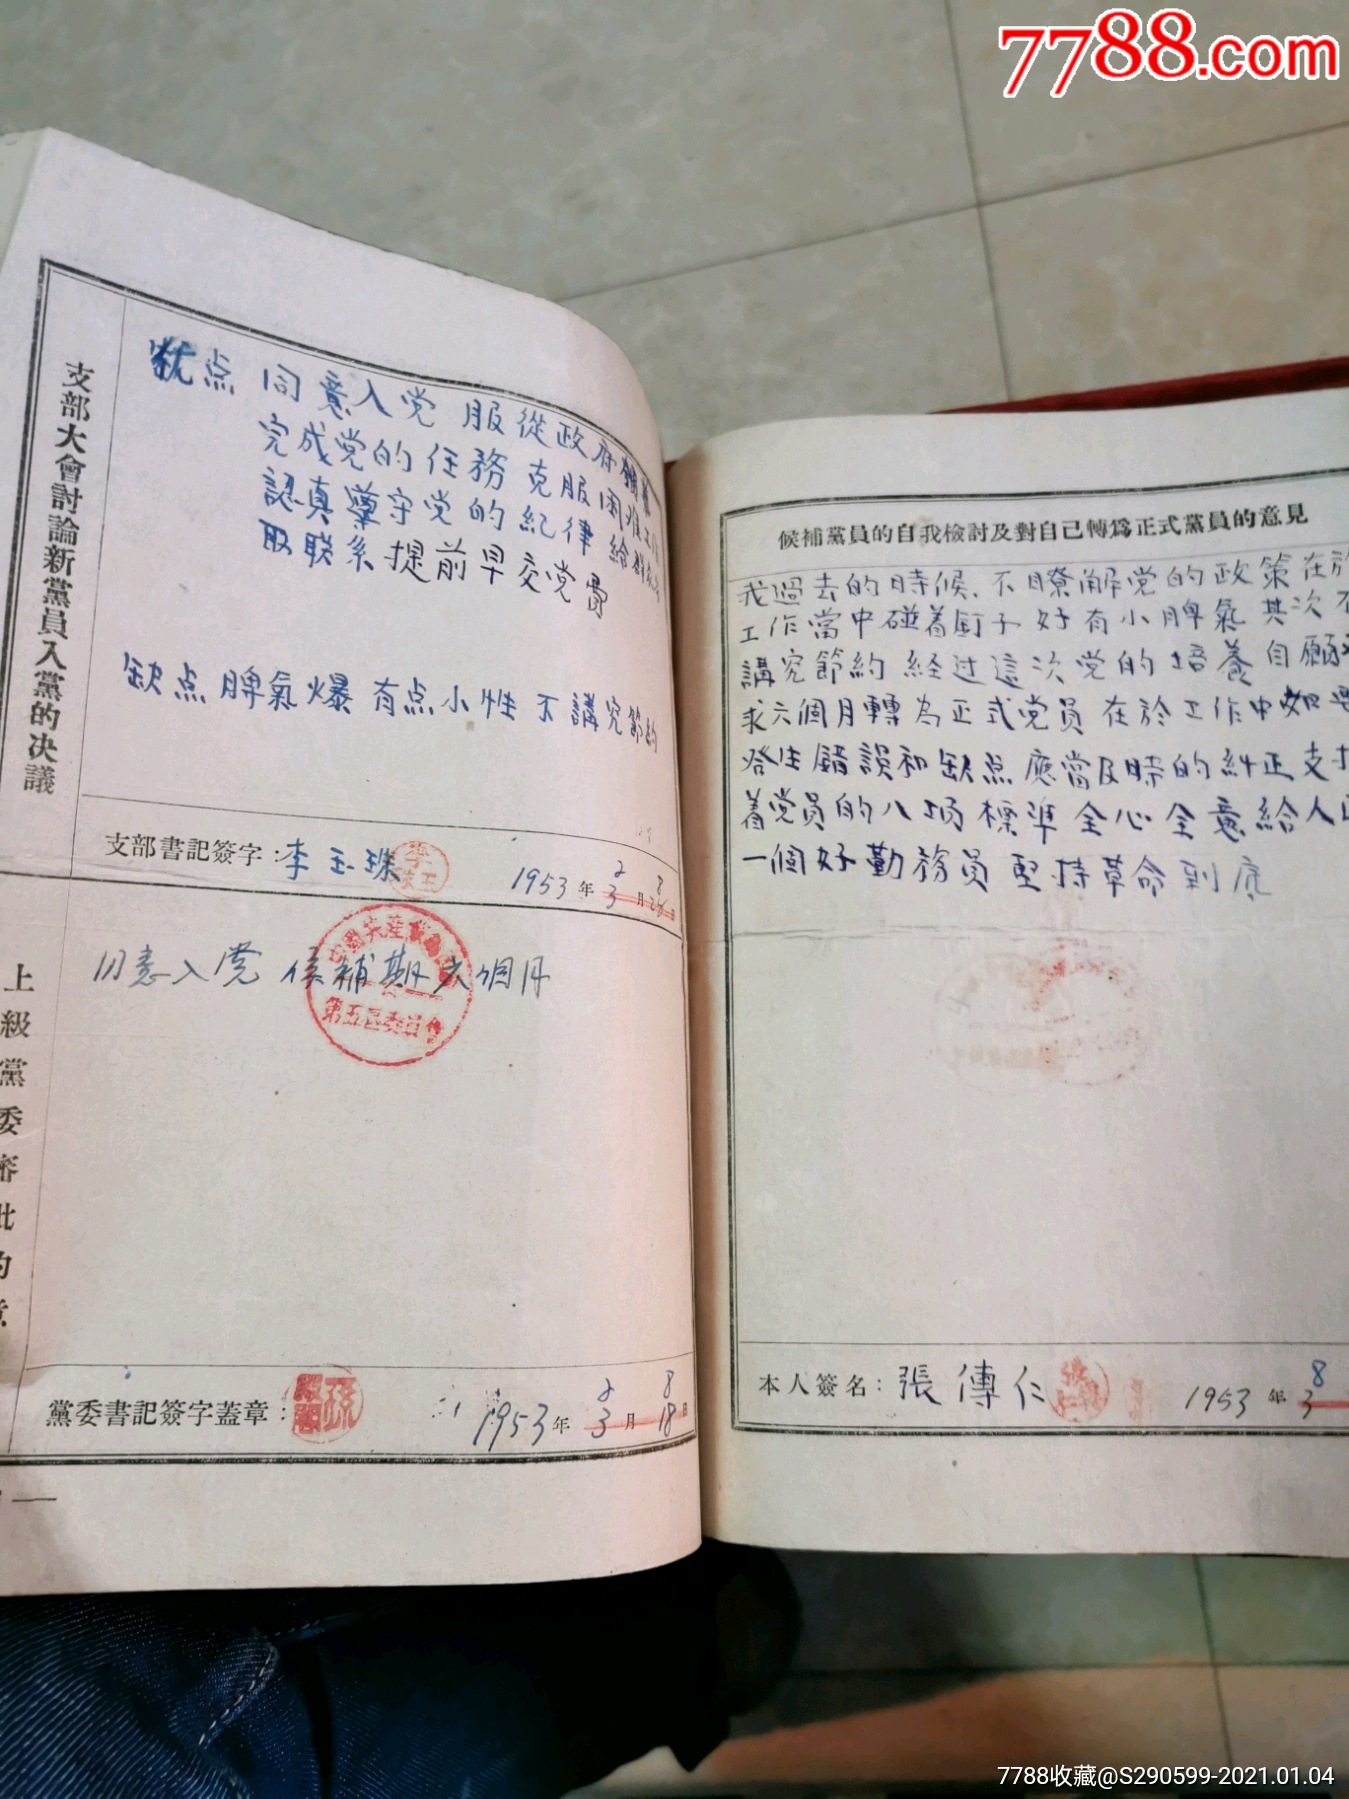 7788.com
支部大會討論新黨員入黨的决議
优点 同意入党 服從政府領導
完成党的任務 克服困难工作
認真遵守党的紀律 給群众
取联系 提前早交党費
缺点 脾氣爆 有点小性 不講究節約
支部書記簽字：李玉珠
1953年 2 3月 8 日
上級黨委審批的意
同意入党 候補期六個月
第五區委員會
黨委書記簽字蓋章：
1953年 2 3月 8 18日
候補黨員的自我檢討及對自己轉爲正式黨員的意見
我過去的時候、不瞭解党的政策在於
工作當中碰着釘子好有小脾氣 其次不
講究節約 経过這次党的培養自願
求六個月轉為正式党員 在於工作中如要
發生錯誤和缺点應當及時的糾正支
着党員的八項標準全心全意給人
一個好勤務員堅持革命到底
本人簽名：張傳仁
1953年 8 3
7788收藏@S290599-2021.01.04